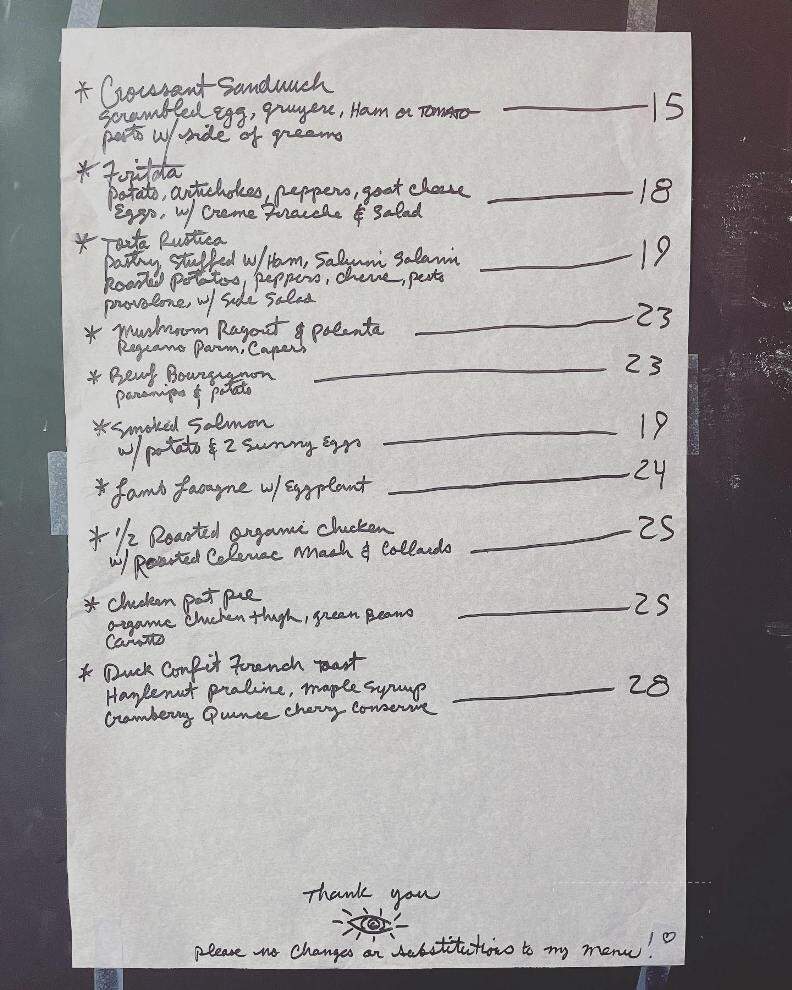 * Croissant Sandwich
Scrambled Egg, gruyere, Ham or TOMATO 15
pesto w/ side of greens
* Fritata
potato, artichokes, peppers, goat cheese 18
Eggs, w/ Creme Fraiche & Salad
* Torta Rustica
pastry Stuffed w/ Ham, Salumi Salami 19
Roasted Potatos, peppers, cheese, pesto
provolone, w/ Side Salad
* Mushroom Ragout & Polenta 23
Regiano Parm, Capers
* Beuf Bourgignon 23
parsnips & potato
* Smoked Salmon 19
w/ potato & 2 Sunny Eggs
* Lamb Lasagne w/ Eggplant 24
* 1/2 Roasted organic chicken 25
w/ Roasted Celeriac Mash & Collards
* Chicken pot pie
organic chicken thigh, green Beans 25
Carotts
* Duck Confit French toast
Hazlenut praline, maple Syrup 28
Cramberry Quince cherry Conserve
Thank you
please no changes or substitutions to my menu! ♡